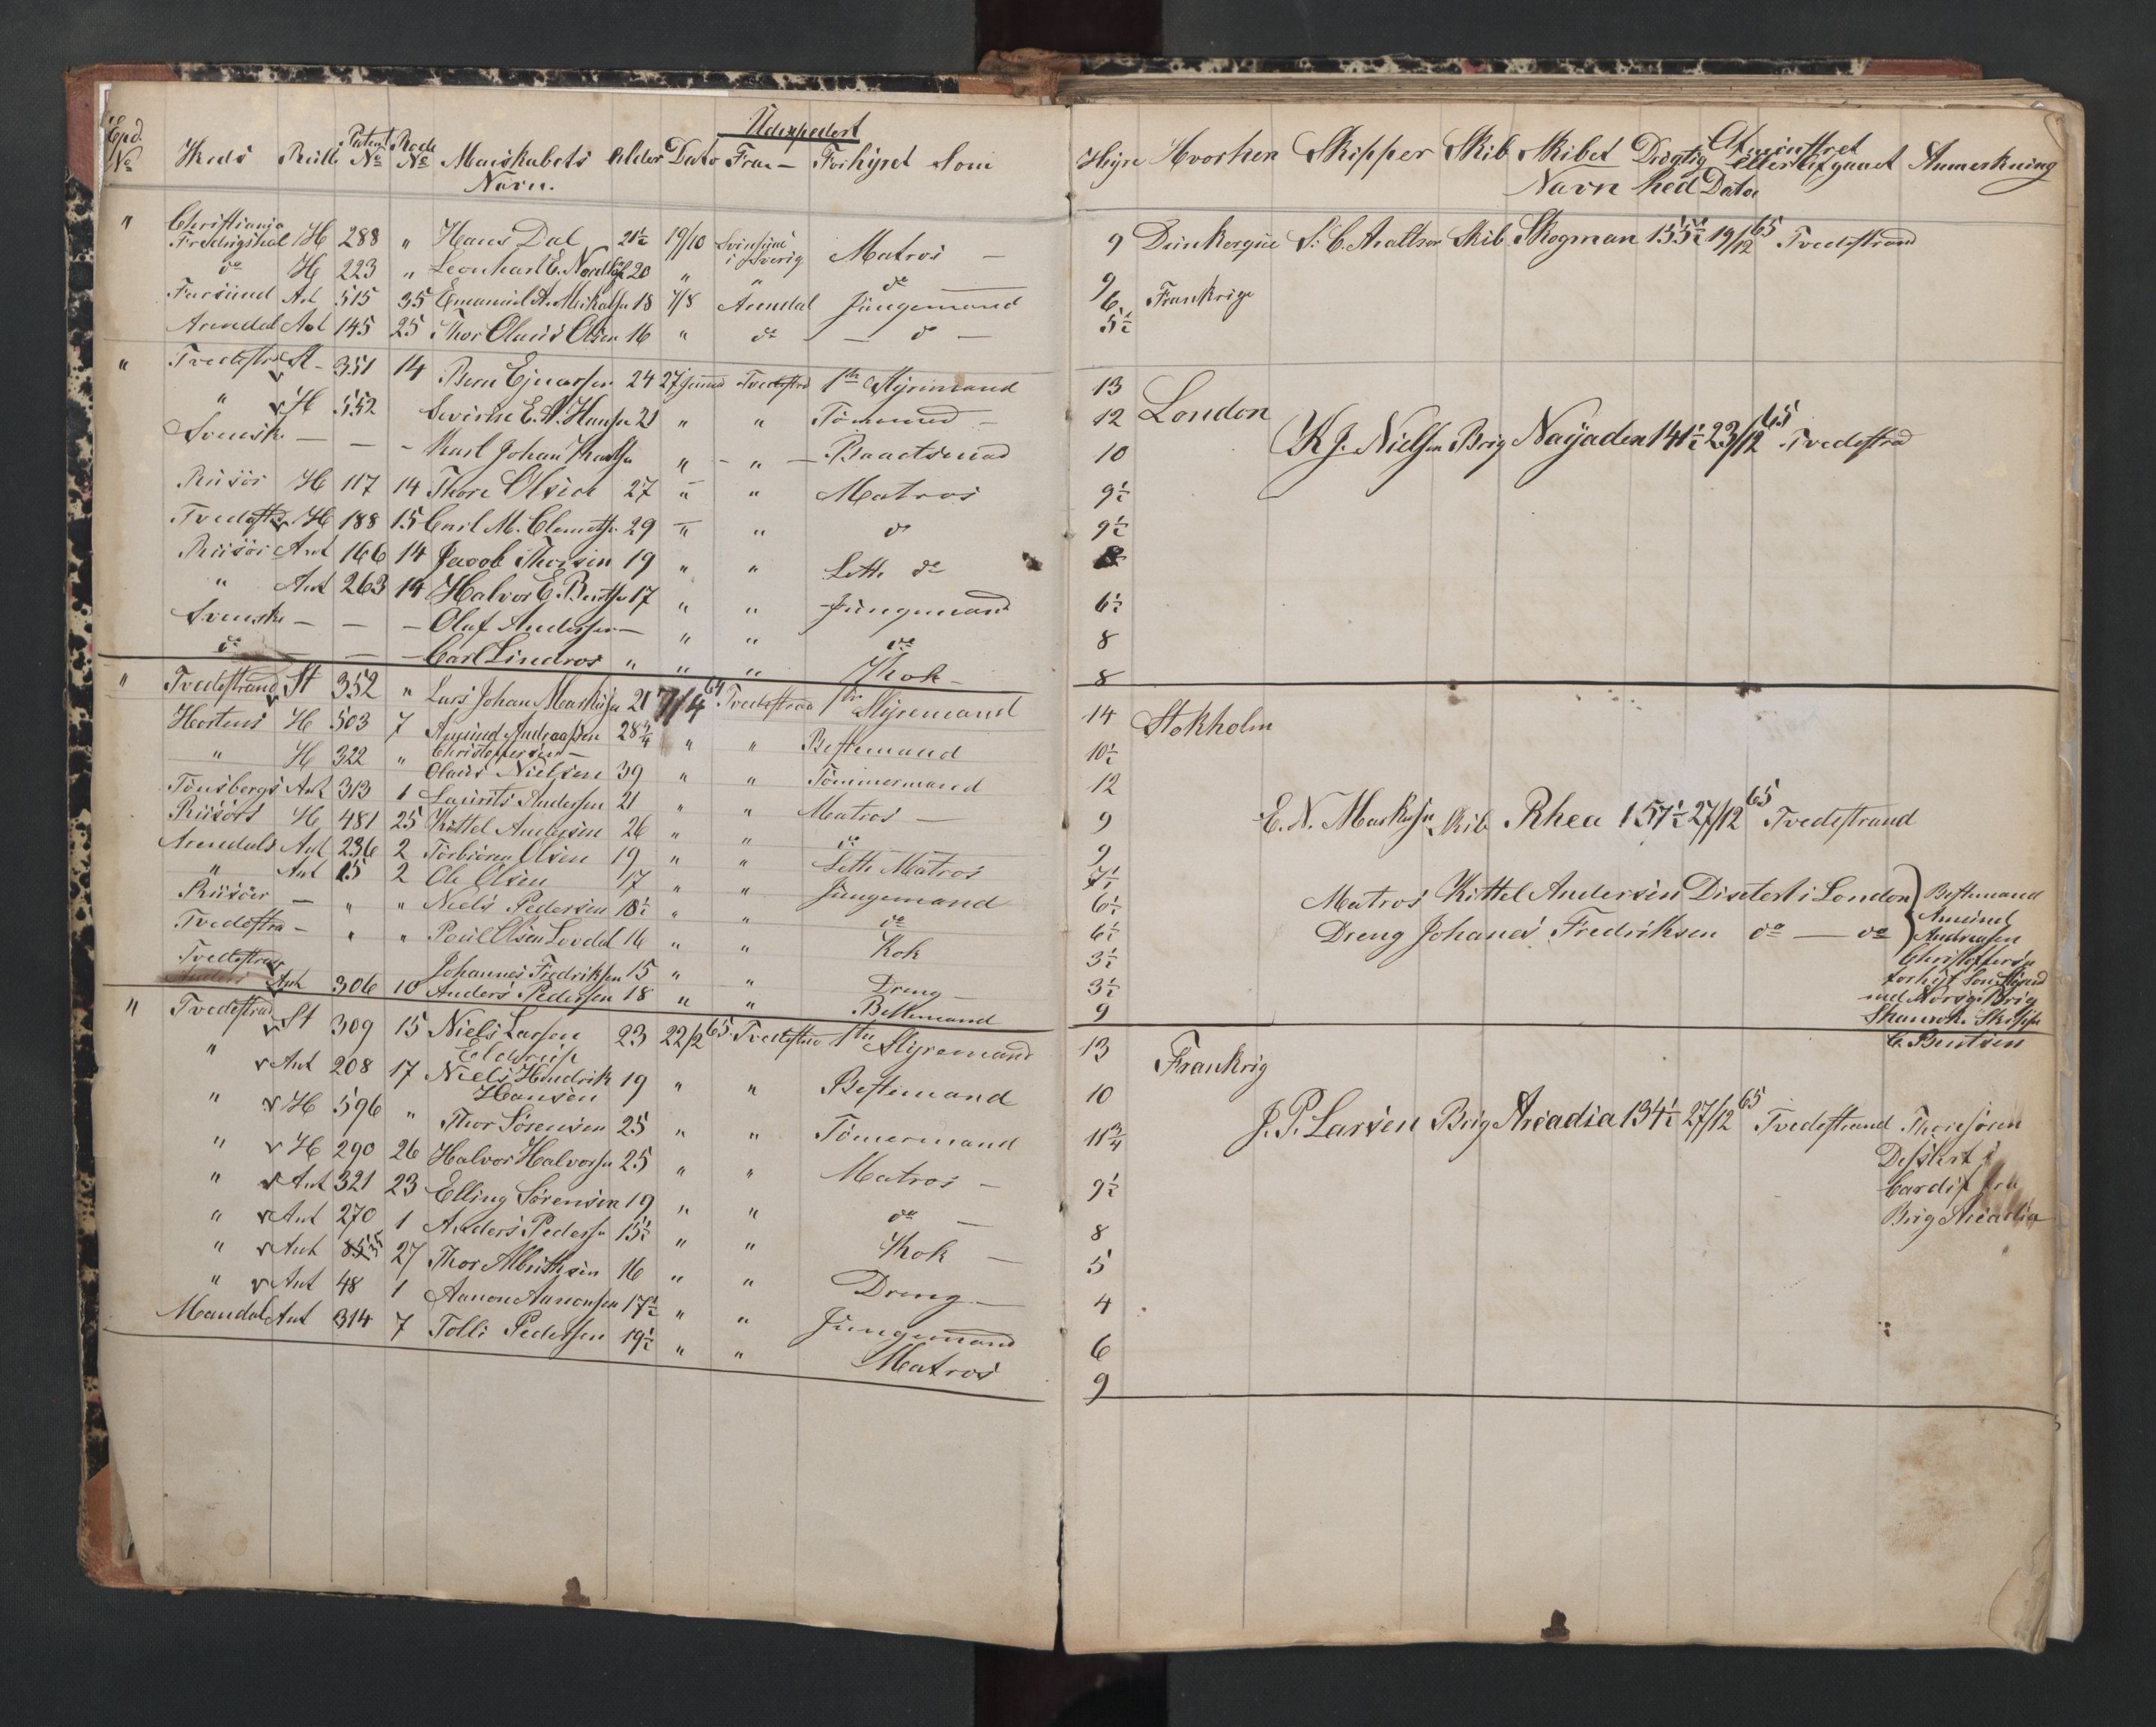 Udexpedert
Exp. No Kreds Rulle Patent No Rode No Manskabets Navn. Alder Dato Fra - Forhyret Som
" Christiania
Fredrigshal H 288 " Hans Dal 21½ 19/10 Svinsund i Sverig Matros -
do H 223 " Leonhart E. 20 " " do
Farsund Ant 515 35 Emanuel A. Mikalsen 18 7/8 Arendal Jungemand
Arendal Ant 145 25 Thor Olaus Olsen 16 " do - do -
" Tvedestrd St - 351 14 Bern Ejnarsen 24 27 Tvedestrd 1ste Styrimand
" H 552 Severine E. A. Hansen 21 " " Tömmermd -
Svenske - - - Karl Johan " - " - Baadtsmad
Riisör H 117 14 Thore Olsen 27 " " Matros
Tvedestr H 188 15 Carl M. Clemetsen 29 " " do
Riisör Ant 166 14 Jacob Thorsen 19 " " Lette do
" Ant 263 14 Halvor E. Bentsen 17 " " Jungemand
Svenske - - - Oluf Andersen - " " do
do - - - Carl Lindros " " " Kok -
" Tvedestrand St 352 " Lars Johan Markusen 21 7/4 64 Tvedestrad 1ste Styremand
Hortens H 503 7 Amund Andreassen 28¾ " " Bestemand
Christoffersen -
" H 322 " Olaus Nielsen 39 " " Tömmermand
Tönsbergs Ant 313 1 Laurits Andersen 21 " " Matros -
Riisörs H 481 25 Kittel Andersen 26 " " do
Arendals Ant 236 2 Torbiören Olsen 19 " " Lette Matros
" Ant 15 2 Ole Olsen 17 " " Jungemand
Riisöer - " " Niels Pedersen 18½ " " do
Tvedestra - " " Poul Olsen Lovdal 16 " " Kok
Tvedestran Johannes Fredriksen 15 " " Dreng -
Ant 306 10 Anders Pedersen 18 " " Bestemand
" Tvedestrad St 309 15 Niels Larsen 23 22/2 65 Tvedestran 1ste Styremand
" Ant 208 17 Niels Hendrik Hansen 19 " " Bestemand
" H 596 " Thor Sörensen 25 " " Tömermand
" H 290 26 Halvor Halvorsen 25 " " Matros -
" Ant 321 23 Elling Sörensen 19 " " do -
" Ant 270 1 Anders Pedersen 15½ " " Kok -
" Ant 27 Thor Albrethsen 16 " " Dreng -
" Ant 48 1 Aanon Aanonsen 17½ " " Jungemand
Mandals Ant 314 7 Tolli Pedersen 19½ " " Matros
Hyre Hvorhen Skipper Skib Skibet Navn Drægtighed Afmönstret eller Afgaaet Dato Anmerkning
9 Dünkerque S. C. Axelsen Skib Skogman 155½ 19/12 65 Tvedestrand
9
6 Frankrige
5½
13
12 London
K J. Nielsen Brig Nayaden 141½ 23/12 65 Tvedestrad
10
9½
9½
8
6½
8
8
14 Stokholm
10½
12
9 E. N. Markusen Skib Rhea 157½ 27/12 65 Tvedestrand
9
7½
6½ Matros Kittel Andersen Disetert i London } Bestemand
6½ Dreng Johanes Fredriksen do - do } Amund
Andreasen
3½ Christoffersen
3½ forhyst Som Styrmd
med Norsge Brig
9 Skipper
C. Bentsen
13 Frankrig
10
11¾ J. P. Larsen Brig Arcadia 134½ 27/12 65 Tvedestrand Thor Sören
Desetert i
9½ Cardif fra
Brig Arcadia
8
5
4
6
9